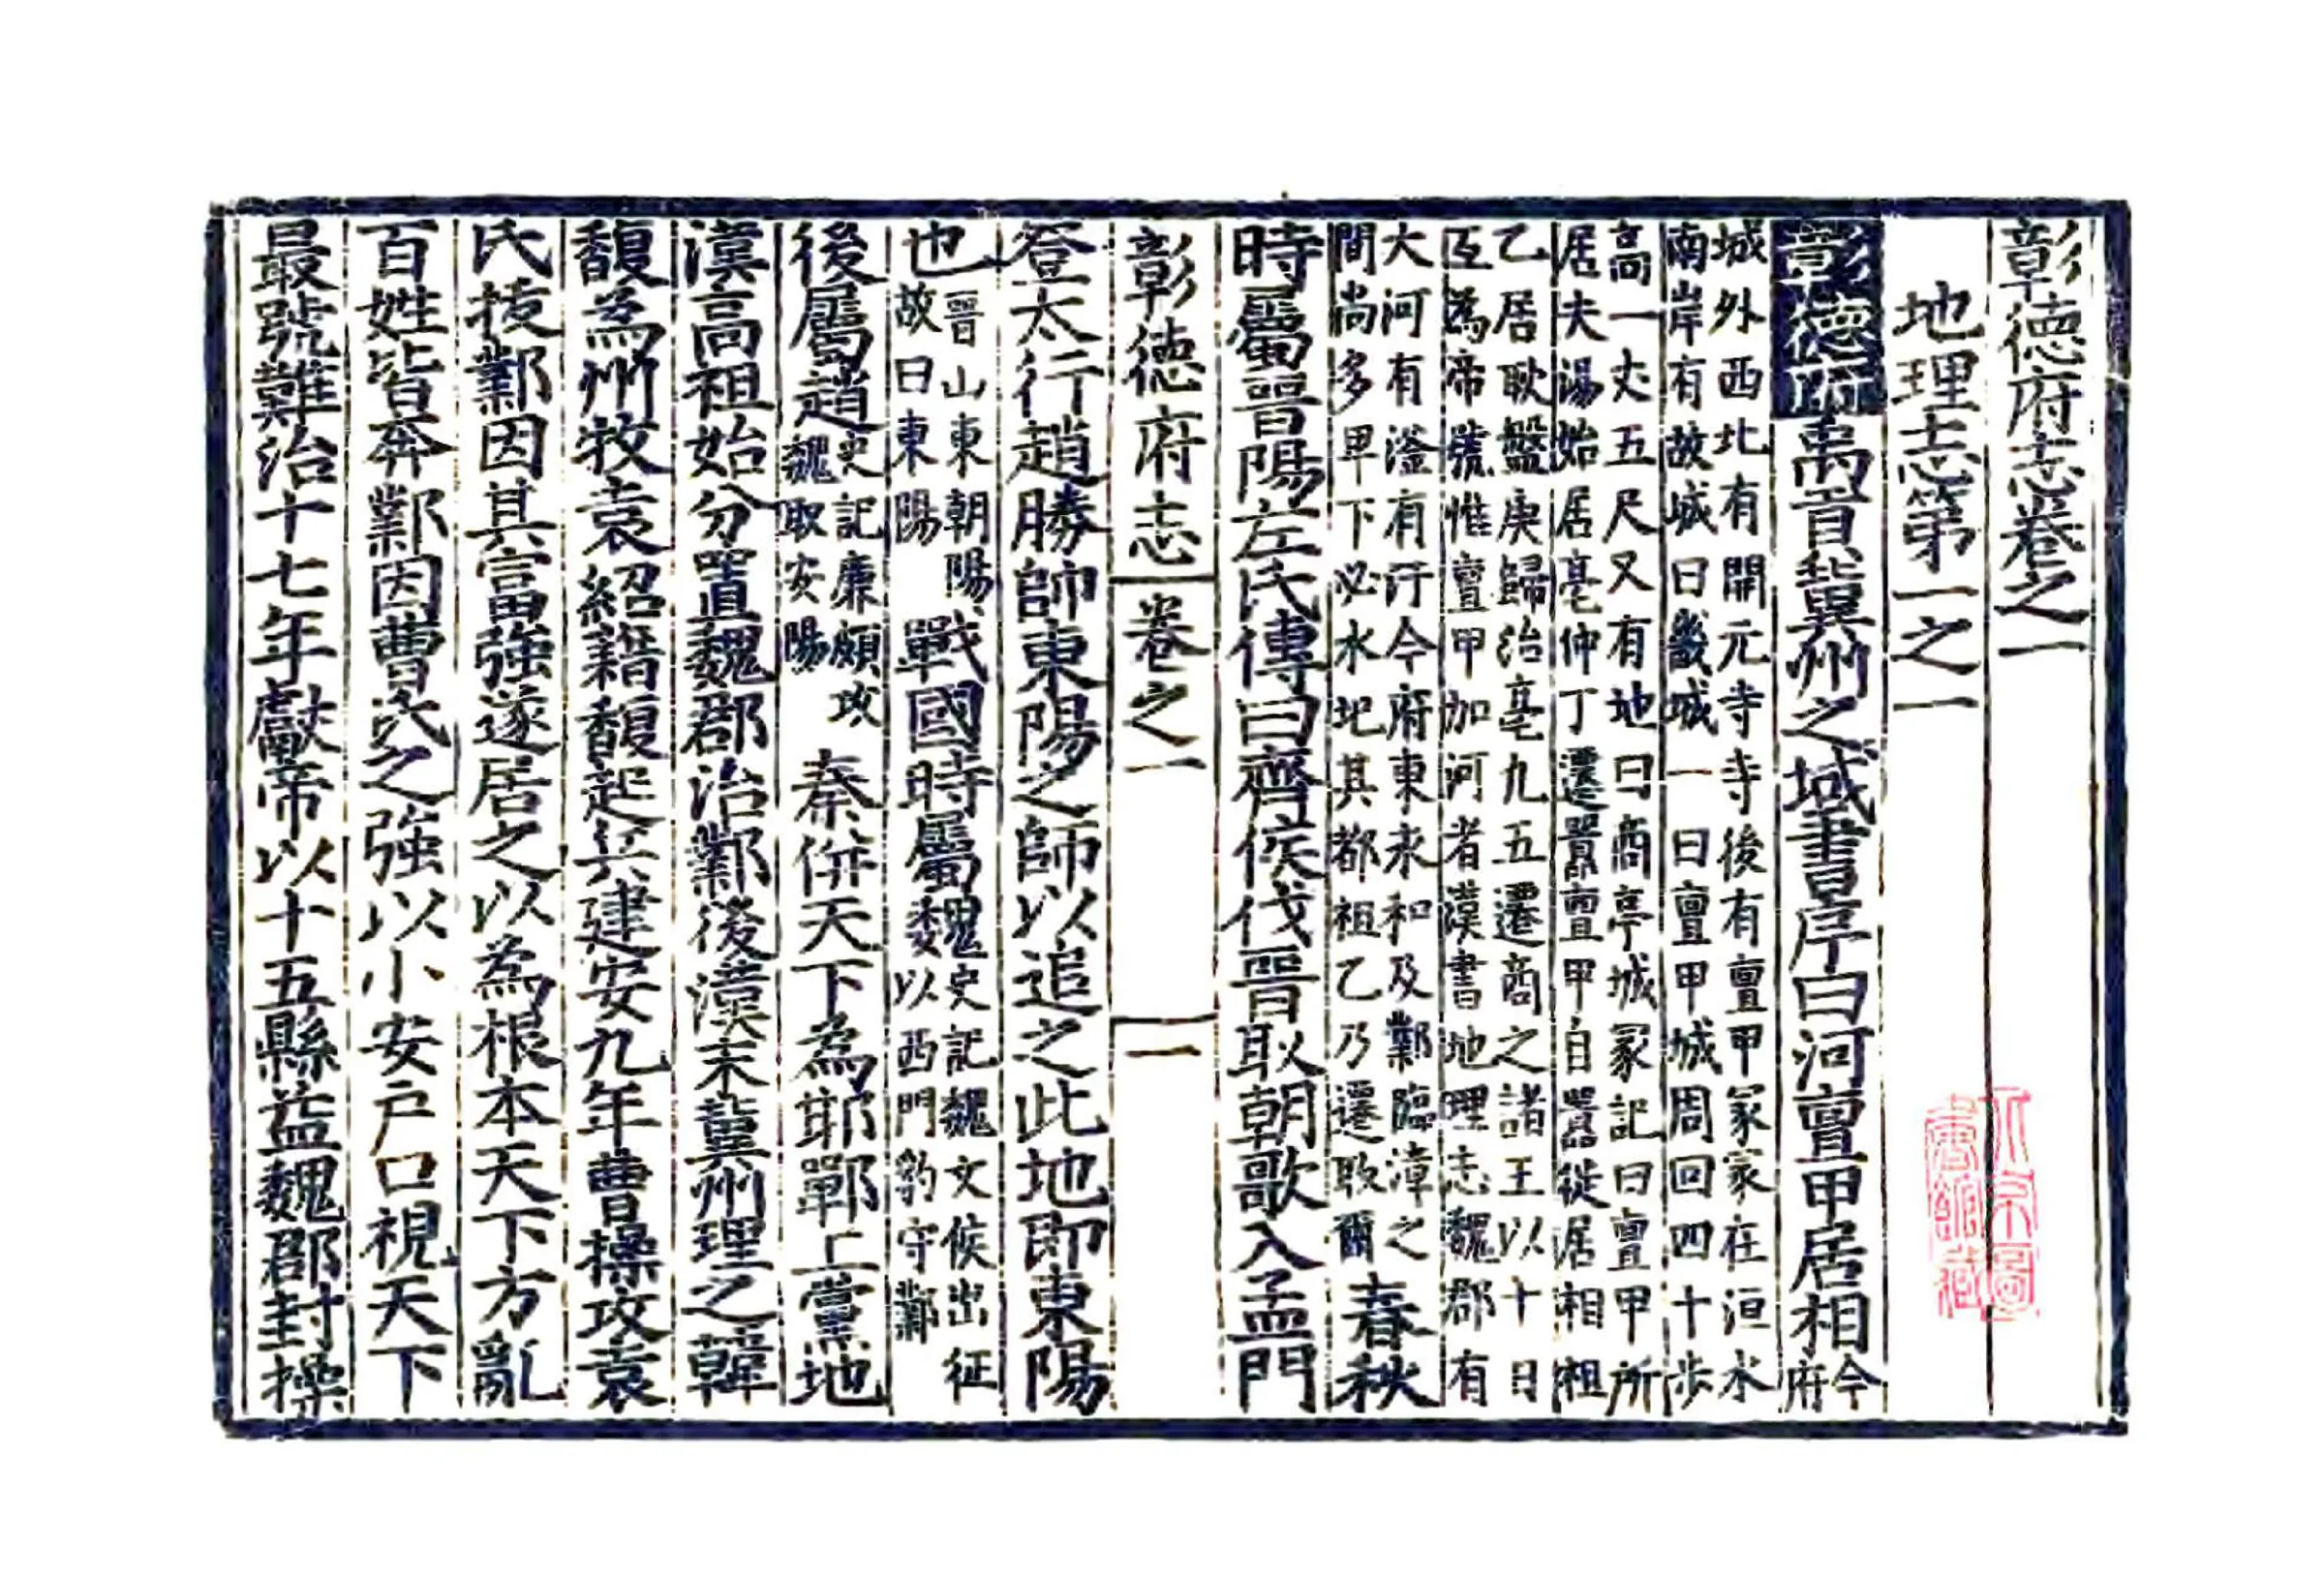 彰德府志卷之一
地理志第一之一
彰德府禹貢冀州之域書序曰河亶甲居相今府
城外西北有開元寺寺後有亶甲冢冢在洹水
南岸有故城曰畿城一曰亶甲城周回四十步
高一丈五尺又有地曰商亭城冢記曰亶甲所
居夫湯始居亳仲丁遷囂亶甲自囂徙居相祖
乙居耿盤庚歸治亳九五遷商之諸王以十日
亙為帝號惟亶甲加河者漢書地理志魏郡有
大河有滏有汙今府東永和及鄴臨漳之
間尚多卑下必水圮其都祖乙乃遷耿爾春秋
時屬晉陽左氏傳曰齊侯伐晉取朝歌入孟門
彰德府志 卷之一 一
登太行趙勝帥東陽之師以追之此地即東陽
也晉山東朝陽故曰東陽戰國時屬魏史記魏文侯出征以西門豹守鄴
後屬趙史記廉頗攻魏取安陽秦併天下為邯鄲上黨地
漢高祖始分置魏郡治鄴後漢末冀州理之韓
馥為州牧袁紹藉馥起兵建安九年曹操攻袁
氏拔鄴因其富強遂居之以為根本天下方亂
百姓皆奔鄴因曹氏之強以小安戶口視天下
最號難治十七年獻帝以十五縣益魏郡封操
北京圖書館藏